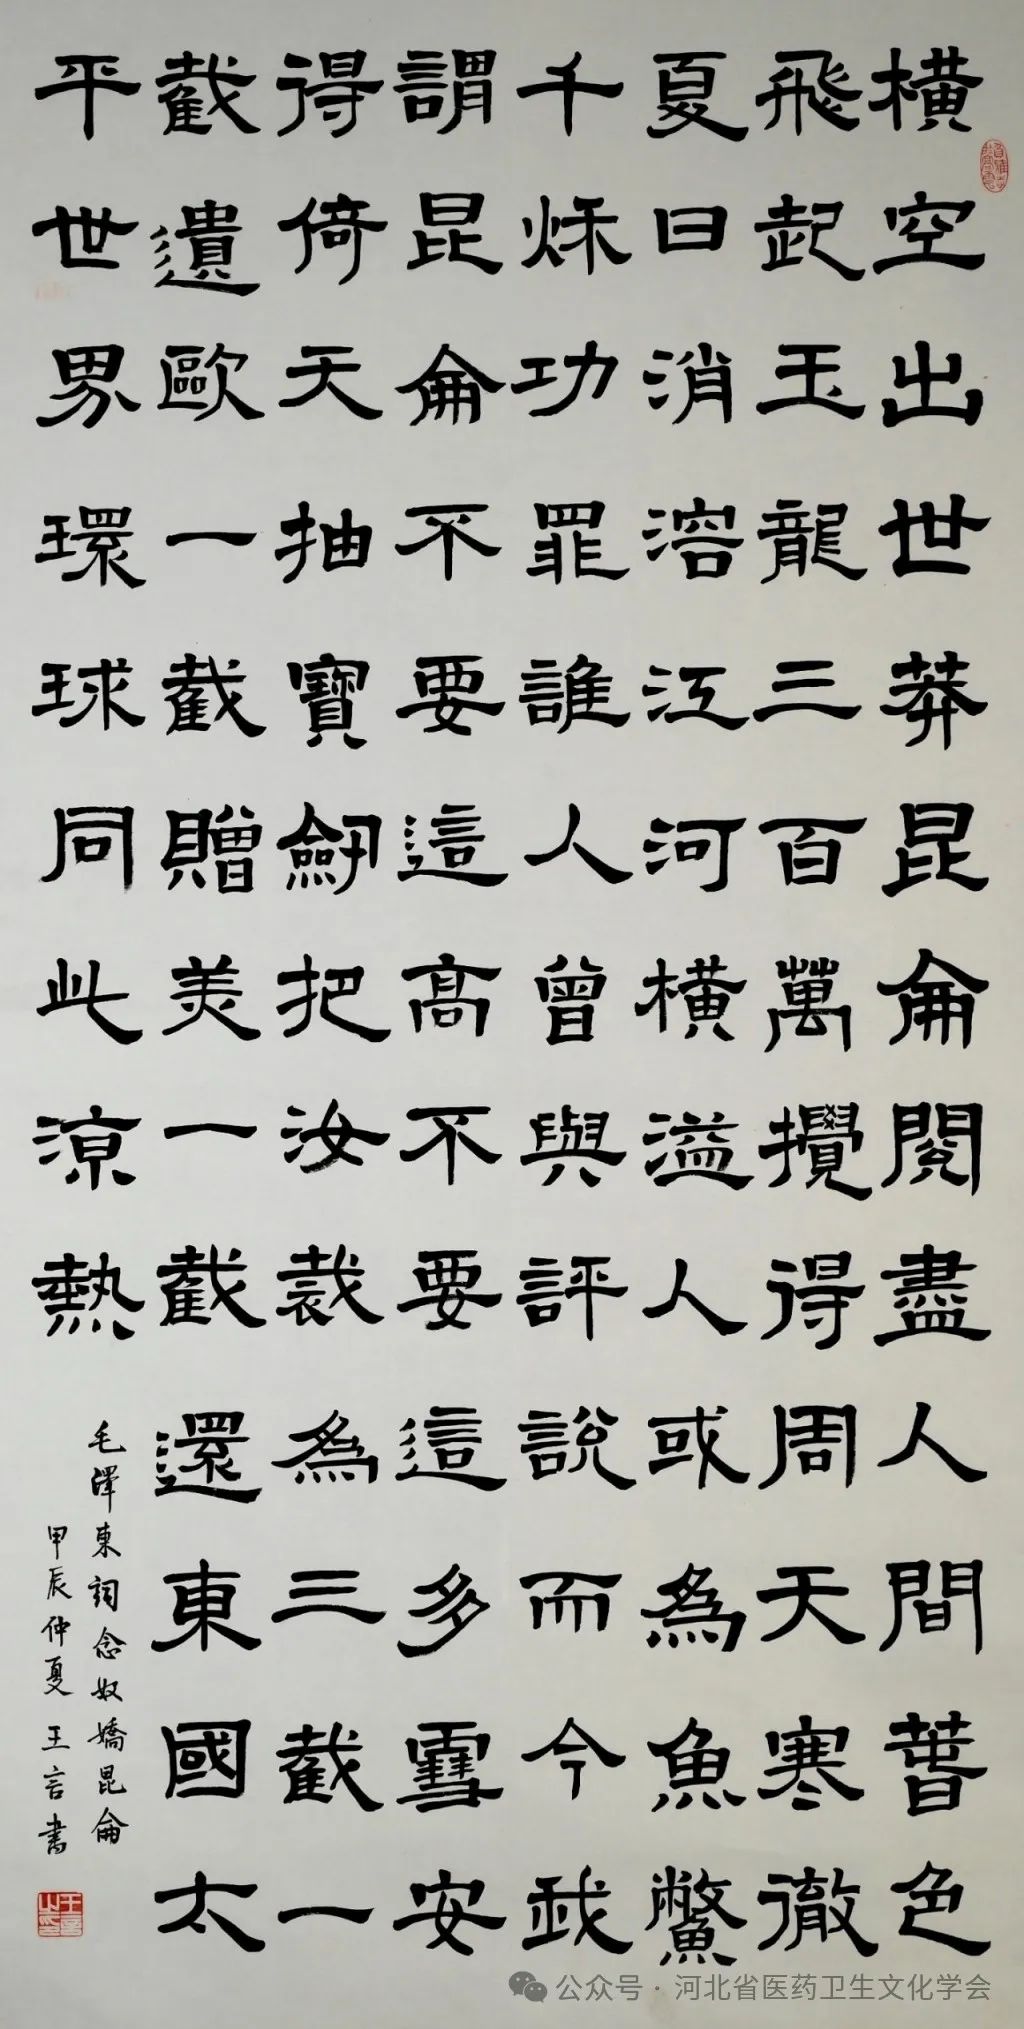 橫空出世莽昆侖閱盡人間萅色
飛起玉龍三百萬攪得周天寒徹
夏日消溶江河橫溢人或為魚鱉
千烁功罪誰人曾與評說而今我
謂昆侖不要這高不要這多雪安
得倚天抽寶劒把汝裁為三截一
截遺歐一截贈美一截還東國太
平世界環球同此涼熱
毛澤東詞念奴嬌昆侖
甲辰仲夏王言書
公众号·河北省医药卫生文化学会